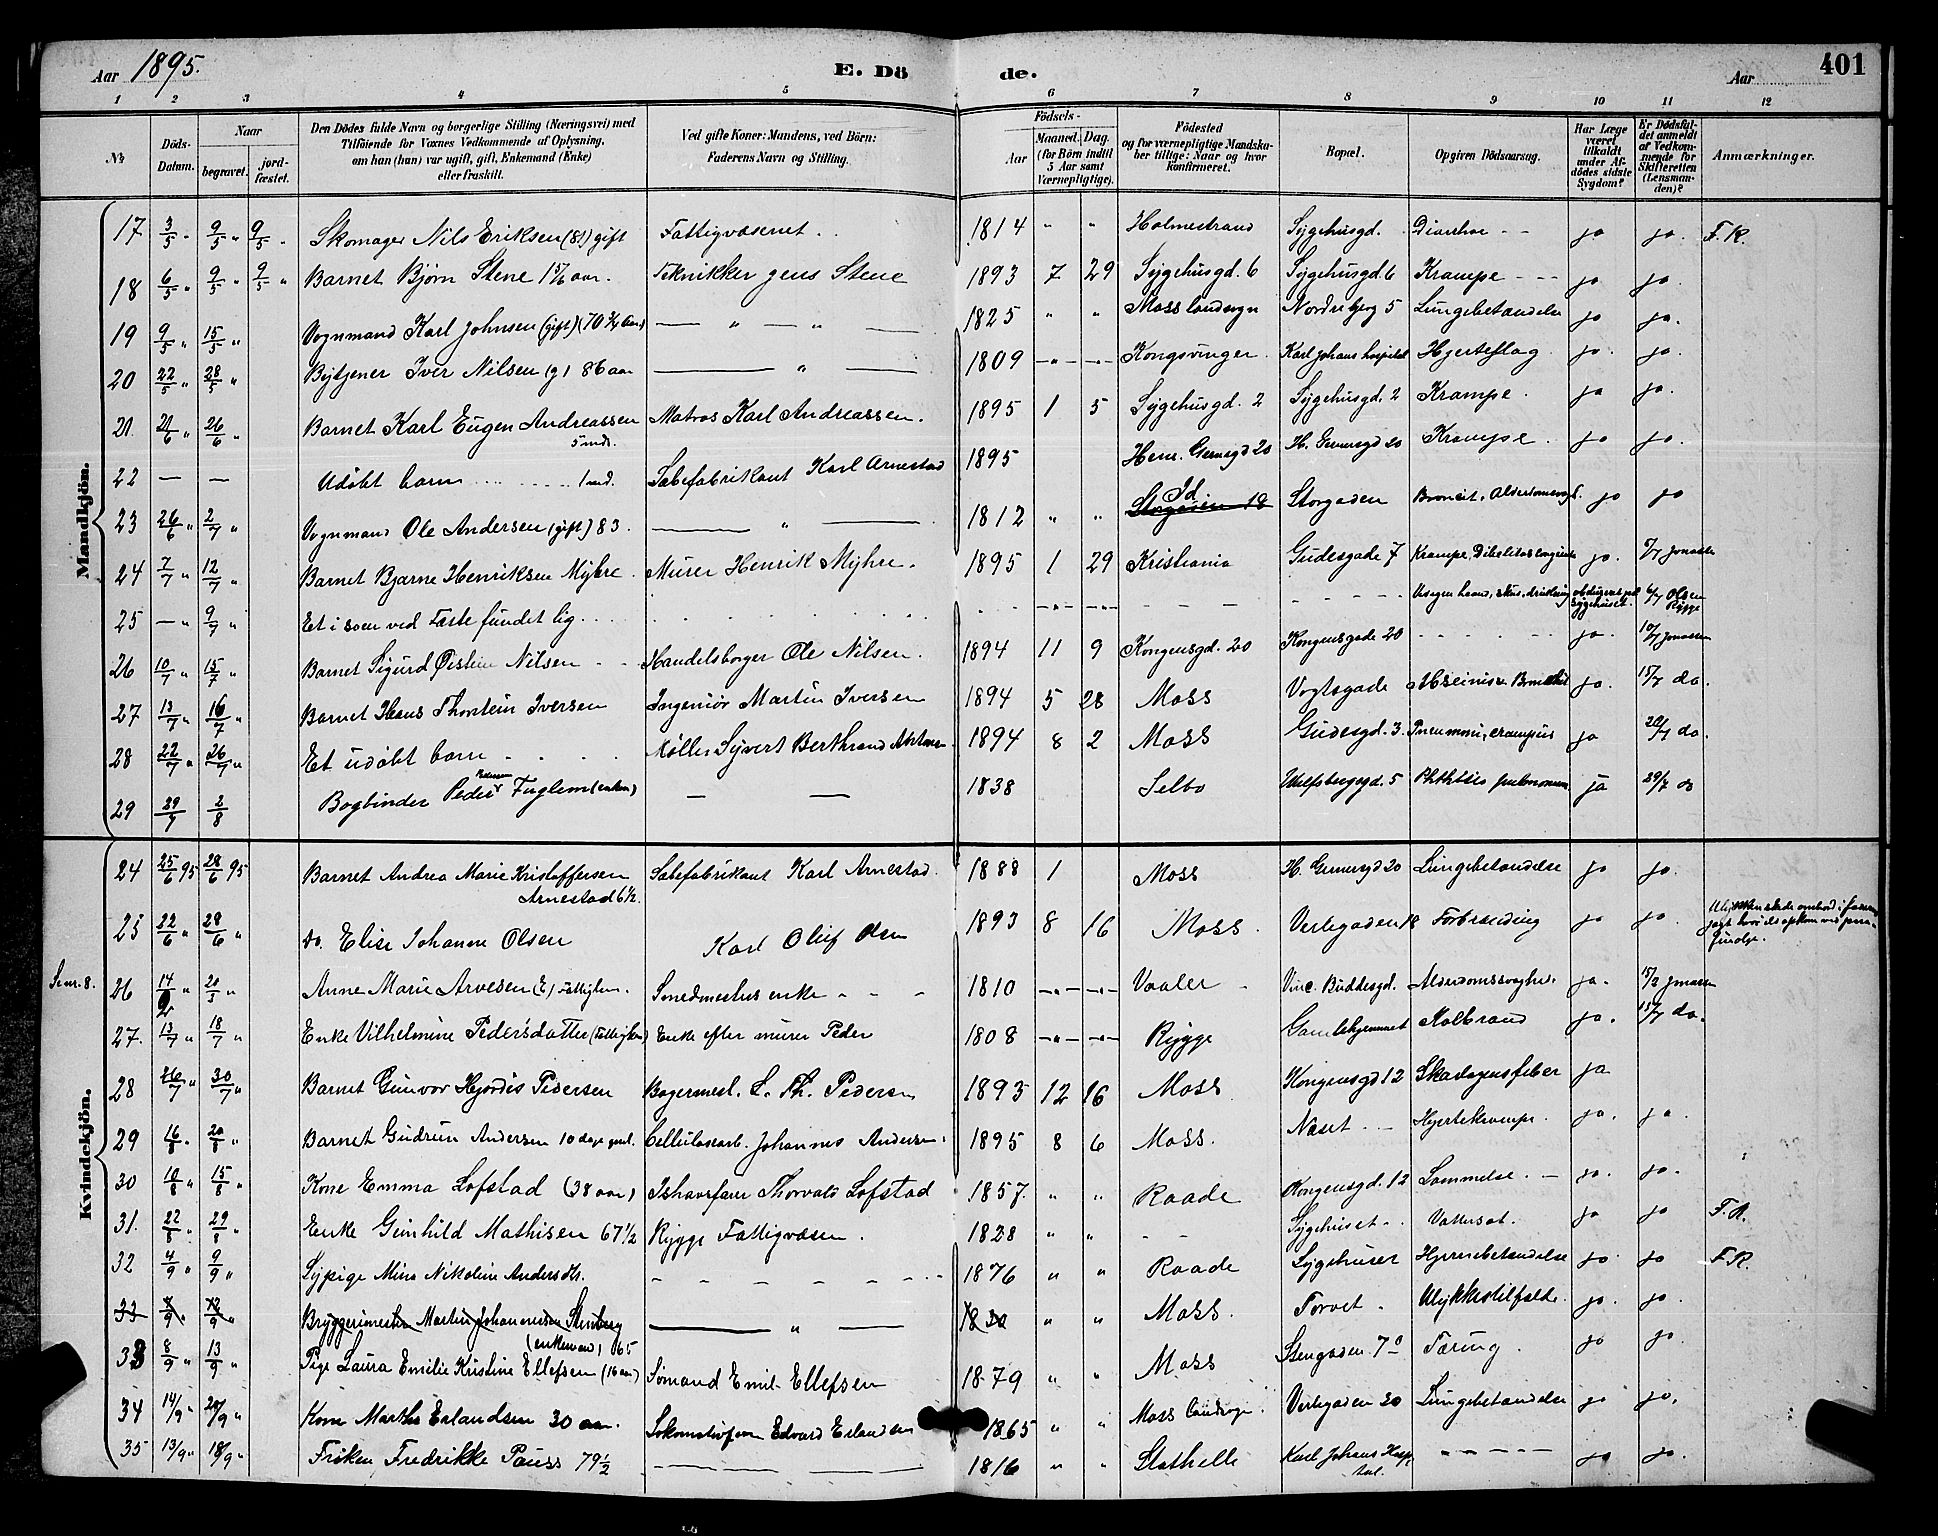 Aar 1895. E. Dö de. Aar 401
1 2 3 4 5 6 7 8 9 10 11 12
№ Döds-Datum. Naar begravet. jordfæstet. Den Dödes fulde Navn og borgerlige Stilling (Næringsvei) med Tilföiende for Voxnes Vedkommende af Oplysning, om han (hun) var ugift, gift, Enkemand (Enke) eller fraskilt. Ved gifte Koner: Mandens, ved Börn: Faderens Navn og Stilling. Födsels- Aar Maaned. Dag. (for Börn indtil 5 Aar samt Værnepligtige). Födested og for værnepligtige Mandskaber tillige: Naar og hvor konfirmeret. Bopæl. Opgiven Dödsaarsag. Har Læge været tilkaldt under Afdödes sidste Sygdom? Er Dödsfaldet anmeldt af Vedkommende for Skifteretten (Lensmanden)? Anmærkninger.
Mandkjön.
17 3/5 " 9/5 " 9/5 " Skomager Nils Eriksen (81) gift Fattigvæsenet . . 1814 " " Holmestrand Sygehusgd. Diarrhoe - - ja ja. F. K.
18 6/5 " 9/5 " 9/5 " Barnet Bjørn Stene 1 5/6 aar. Teknikker Jens Stene 1893 7 29 Sygehusgd. 6 Sygehusgd. 6 Krampe - - - ja ja.
19 9/5 " 15/5 " Vognmand Karl Johnsen (gift) (70 3/4 aar) — " — " — 1825 " " Moss landsogn Nordre bjerg 5 Lungebetændelse ja ja.
20 22/5 " 28/5 " Bytjener Iver Nilsen (g) 86 aar — " — 1809 —"— —"— Kongsvinger. Karl Johans hospital Hjerteslag. ja. ja.
21. 21/6 " 26/6 " Barnet Karl Eugen Andreassen 5 mdr. Matros Karl Andreassen. 1895 1 5 Sygehusgd. 2 Sygehusgd. 2 Krampe. ja ja.
22 — — Udøbt barn . . . . . 1 md. Sæbefabrikant Karl Arnestad 1895 Henr. Gernersgd 20 H. Gernersgd 20 Krampe. ja ja.
23 26/6 " 2/7 " Vognmand Ole Andersen (gift) 83. — " — 1812 " " Id Storgaden Broncit, ja ja
24 7/7 " 12/7 " Barnet Bjarne Henriksen Myhre. Murer Henrik Myhre. 1895 1 29 Kristiania Gudesgade 7 Krampe, ja. Jonassen
25 — " 9/7 " Et i soen ved fundet lig . . . —"— —"— 6/7 Olsen Rygge
26 10/7 " 15/7 " Barnet Sigurd Øistein Nilsen - - Handelsborger Ole Nilsen. 1894 11 9 Kongensgd. 20 Kongensgade 20 - - - - - ja. 10/7 Jonassen
27 13/7 " 16/7 " Barnet Hans Thorstein Iversen Ingeniør Martin Iversen 1894 5 28 Moss Vogtsgade ja. 15/7 do.
28 22/7 " 26/7 " Et udøbt barn . . . . Møller Syvert Berthrand 1894 8 2 Moss Gudesgd. 3. Pneumoni, crampus ja do.
29 29/7 2/8 Bogbinder Peder Fuglem (enkem) — — 1838 Selbo Ulfsbergsgd. 5 Phthisis pulmonum ja 29/7 do
Kvindekjön.
24 25/6 95 28/6 95 Barnet Andrea Marie Kristoffersen Arnestad 6 1/2. Sæbefabrikant Karl Arnestad. 1888 1 Moss H. Gernersgd 20 Lungebetændelse ja ja.
25 22/6 " 28/6 " do. Elise Johanne Olsen Karl Oluf Olsen 1893 8 16 Moss. Verlegaden 18 Forbrænding ja ja.
Sem. 8. 26 14/2 " 20/5 " Anne Marie Arvesen (E) Fattiglem. Smedmesters enke - - - 1810 —"— —"— Vaaler Vinc. Buddesgd. Alderdomssvaghed. ja. Jonassen
27. 13/7 " 18/7 " Enke Vilhelmine Pedersdatter (Fattiglem) Enke efter murer Peder 1808 —"— —"— Rygge Gamlehjemmet Kolbrand ja. 15/7 do.
28 26/7 " 30/7 " Barnet Gunvor Hjordis Pedersen Bagermest. L. Th. Pedersen 1893 12 16 Moss Kongensgd 12 Skarlagensfeber ja
29 16/8 " 20/8 " Barnet Gudrun Andersen 10 dage gml. Cellulosearb. Johannes Andersen. 1895 8 6 Moss. Næset . — Hjertekrampe. ja. ja.
30 10/8 " 15/8 " Kone Emma Lofstad (38 aar) Ishavsfarer Thorvald Lofstad 1857. " " Raade Kongensgd. 12 Lammelse. — ja. ja.
31. 22/8 " 29/8 " Enke Gunhild Mathisen 67 1/2 Rygge Fattigvæsen. 1828 " " - - Sygehuset - . Vattersot. ja ja F. K.
32 4/9 " 9/9 " Sypige Mina Nikoline Andersdtr. - - - - - 1876 " " Raade Sygehuset Hjernebetændelse ja. ja F. K.
33 " 12/9 " Bryggerimester Martin Johannessen Stenberg (enkemand) 65 — " — 1830 " " Moss. Torvet. Ulykkestilfælde. ja. ja.
33 8/9 " 13/9 " Pige Laura Emilie Kristine Ellefsen (16 aar) Sømand Emil Ellefsen 1879 " " Moss Stengaden 7 Tæring. ja ja.
34 14/9 " 20/9 " Kone Marthe Erlandsen 30 aar. Lokomotivfører Edvard Erlandsen 1865 " " Moss Landsogn. Verlegaden 20 Lungebetændelse ja ja.
35 13/9 " 18/9 " Frøken Fredrikke Pauss 79 1/2 — — 1816 " " Stathelle Karl Johans Hospital. - - - - - ja ja.